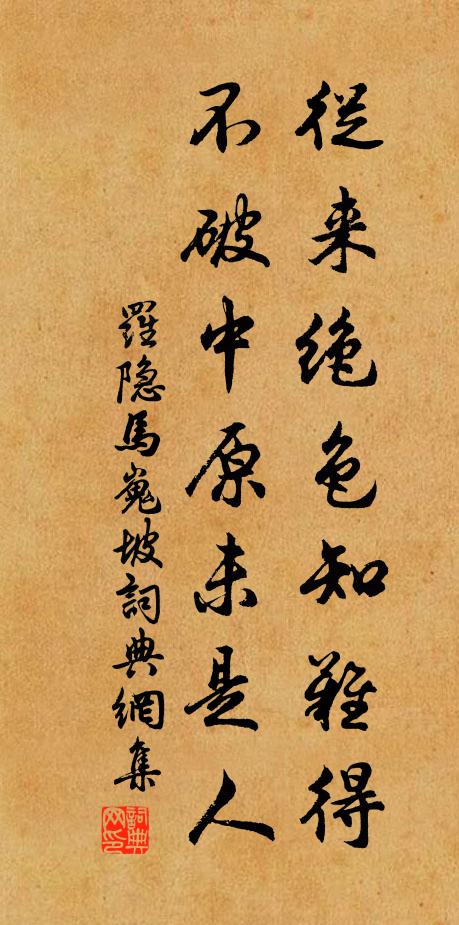 從来絶色知難得
不破中原未是人
羅隐馬嵬坡詞典網集
詞典网印